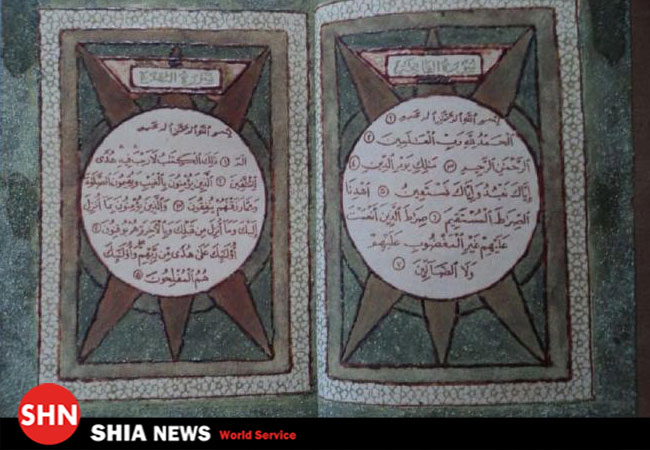 سورة الفاتحة
بسم الله الرحمن الرحيم ١
الحمد لله رب العلمين ٢
الرحمن الرحيم ٣ ملك يوم الدين ٤
إياك نعبد وإياك نستعين ٥ اهدنا
الصراط المستقيم ٦ صراط الذين أنعمت
عليهم غير المغضوب عليهم
ولا الضالين ٧
سورة البقرة
بسم الله الرحمن الرحيم
الم ١ ذلك الكتب لا ريب فيه هدى
للمتقين ٢ الذين يؤمنون بالغيب ويقيمون الصلوة
ومما رزقنهم ينفقون ٣ والذين يؤمنون بما أنزل
إليك وما أنزل من قبلك وبالآخرة هم يوقنون ٤
أولئك على هدى من ربهم وأولئك
هم المفلحون ٥
SHN
SHIA NEWS World Service